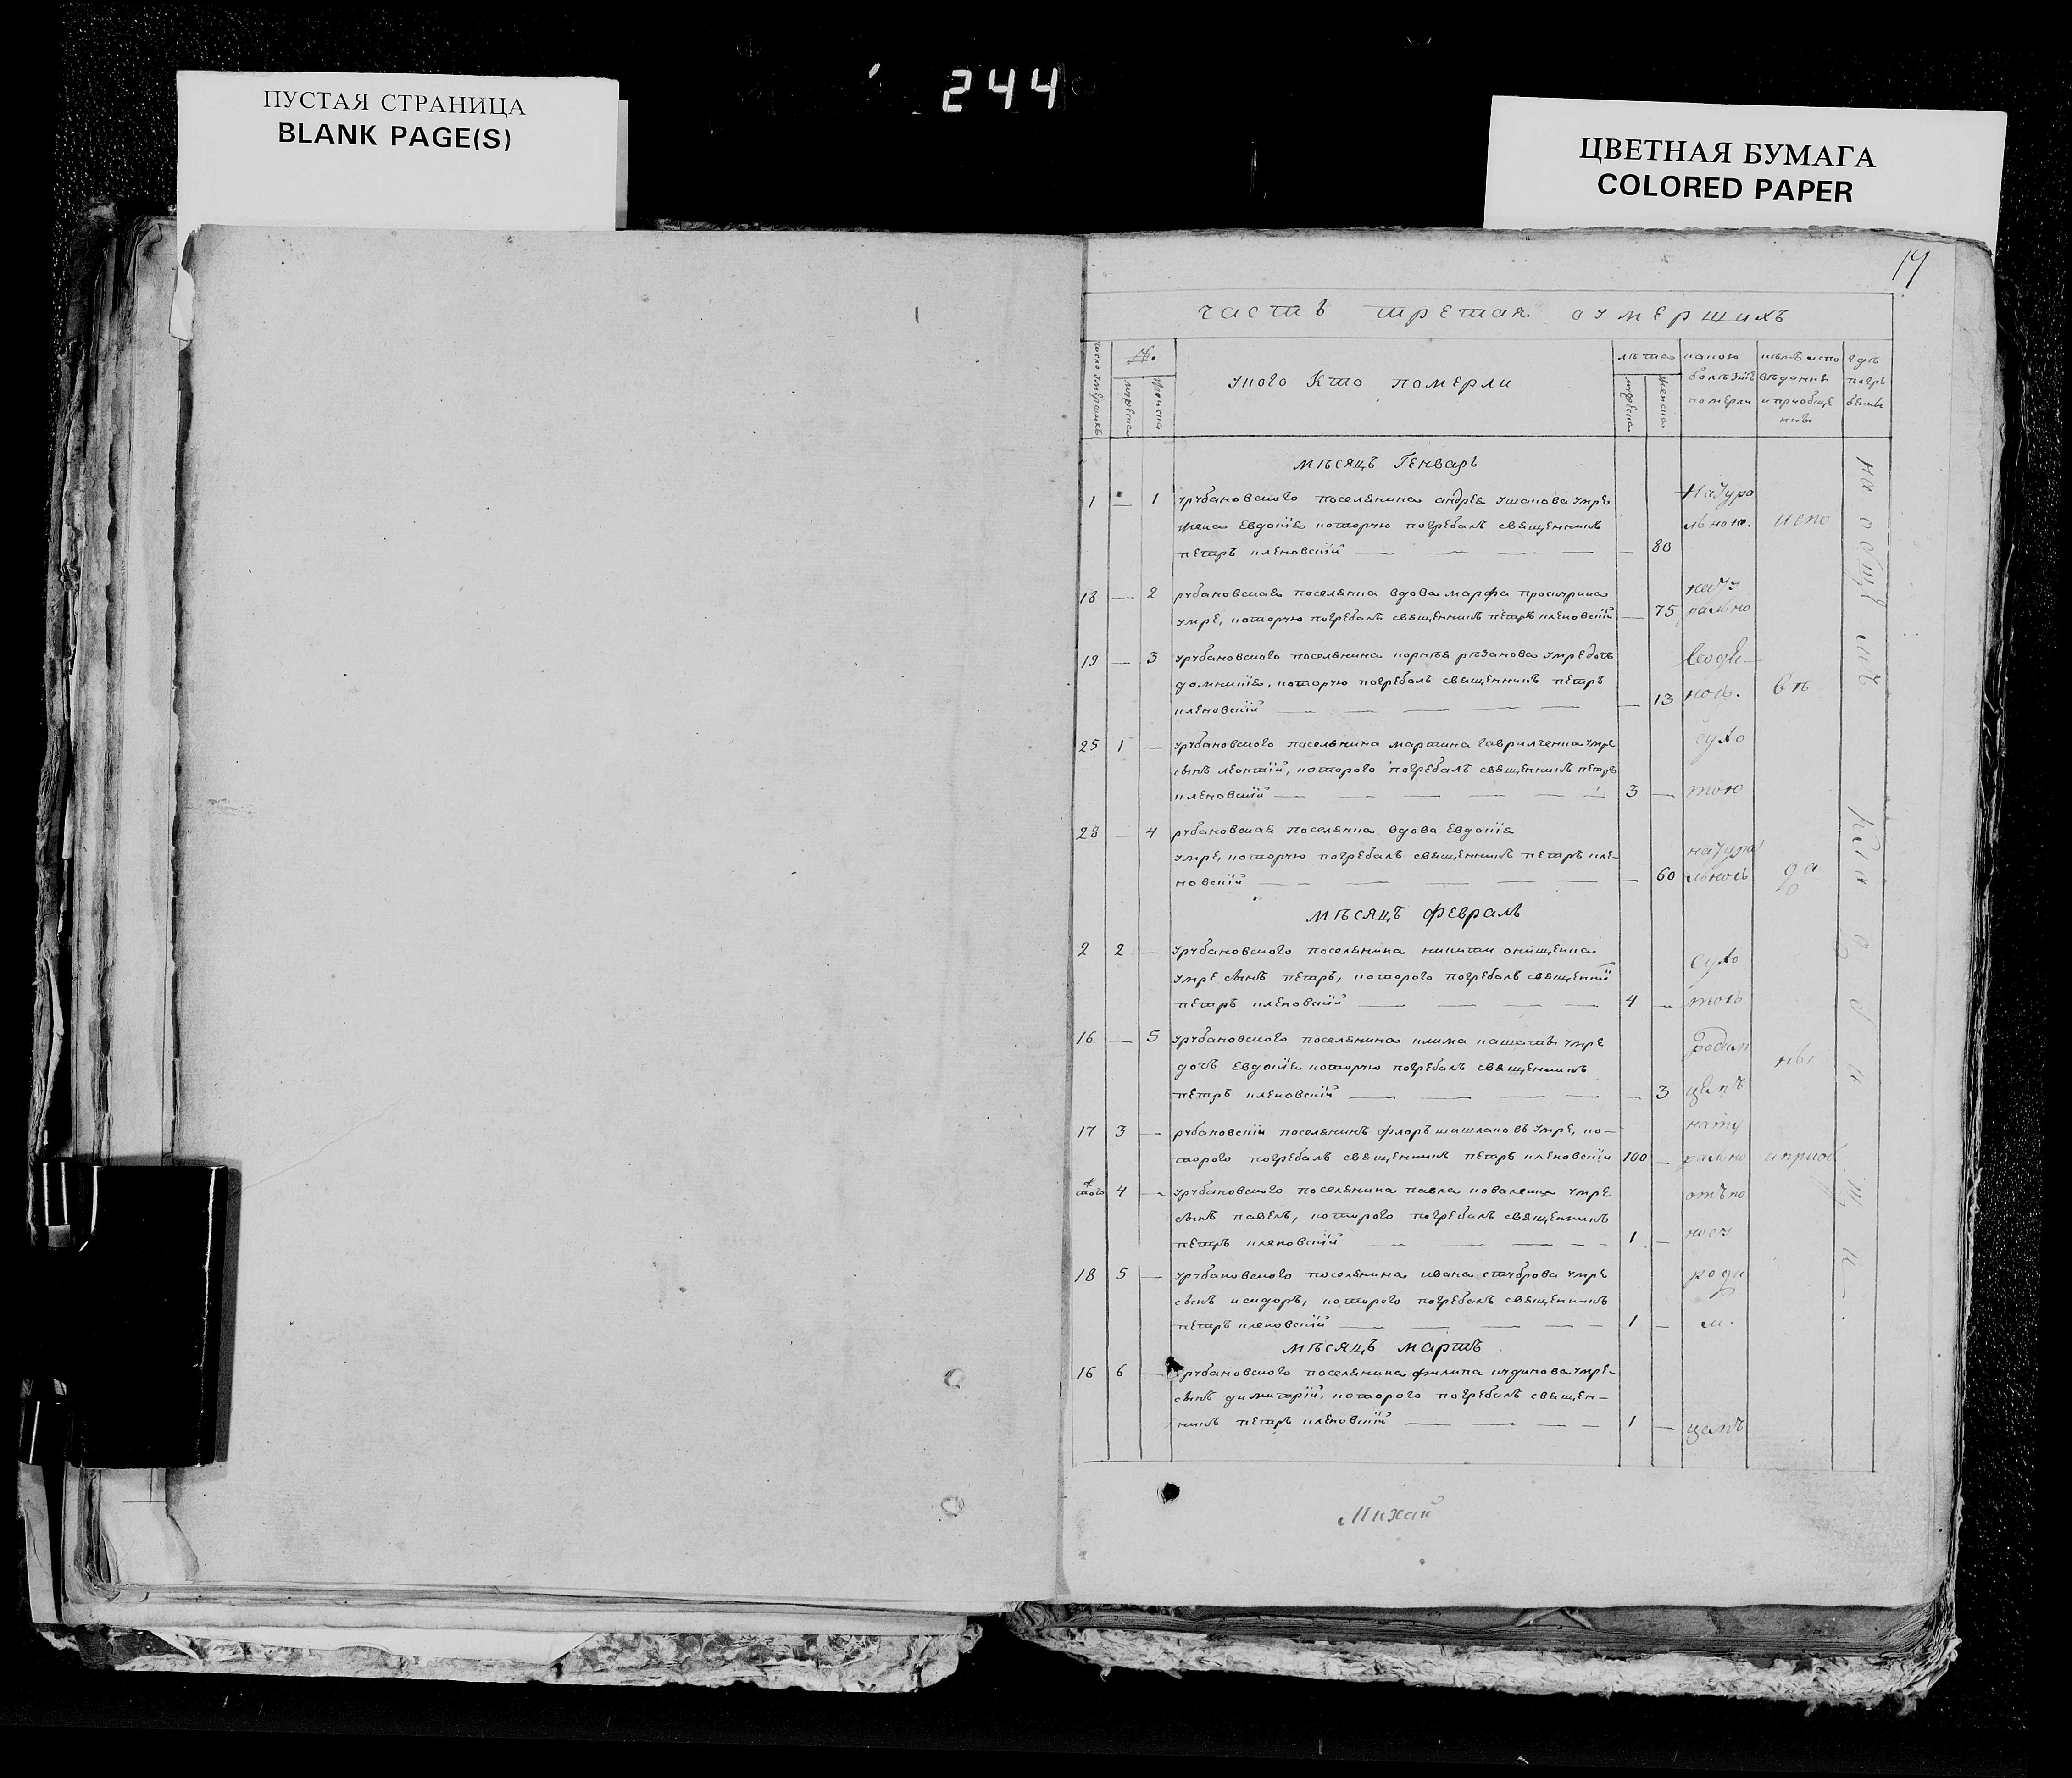 ПУСТАЯ СТРАНИЦА
BLANK PAGE(S)
244
ЦВЕТНАЯ БУМАГА
COLORED PAPER
часть третая оумершихъ
число умершихъ
№.
мужеска
женска
укого Кто померли
лѣта
мужеска
женска
какою болѣзнїю померли
гдѣ погребены
мѣсяцъ Генварь
1 — 1 урубановского поселянина андрея ушакова умре
жена Евдокїя которую погребалъ священникъ
петръ кленовскїй — 80
Натуральною.
18 — 2 рубановская поселянка вдова марфа проскурина
умре, которую погребалъ священникъ петръ кленовскїй — 75
натурально
19 — 3 урубановского поселянина корнѣя рѣзанова умре дочь
домникїя, которую погребалъ священникъ петръ
кленовскїй — 13
25 1 — урубановского поселянина мартина гаврилченка умре
сынъ леонтїй, которого погребалъ священникъ петръ
кленовскїй 3 —
сухотою
28 — 4 рубановская поселянка вдова Евдокїя
умре, которую погребалъ священникъ петръ кле-
новскїй — 60
натуральною
мѣсяцъ февраль
2 2 — урубановского поселянина никиты онищенка
умре сынъ петръ, которого погребалъ священникъ
петръ кленовскїй 4 —
сухотою
16 — 5 урубановского поселянина клима
умре
дочь Евдокїя которую погребалъ священникъ
петръ кленовскїй — 3
родимцемъ
17 3 — рубановскїй поселянинъ флоръ шишлаковъ умре, ко-
торого погребалъ священникъ петръ кленовскїй 100 —
натурально
того 4 — урубановского поселянина павла коваленка умре
сынъ павелъ, которого погребалъ священникъ
петръ кленовскїй 1 —
18 5 — урубановского поселянина ивана
умре
сынъ исидоръ, которого погребалъ священникъ
петръ кленовскїй 1 —
мѣсяцъ мартъ
16 6 — урубановского поселянина филипа кудинова умре
сынъ димитрїй, которого погребалъ священ-
никъ петръ кленовскїй 1 —
родимцемъ
исповѣданы и приоб
на общемъ кладбищи.
Михаи